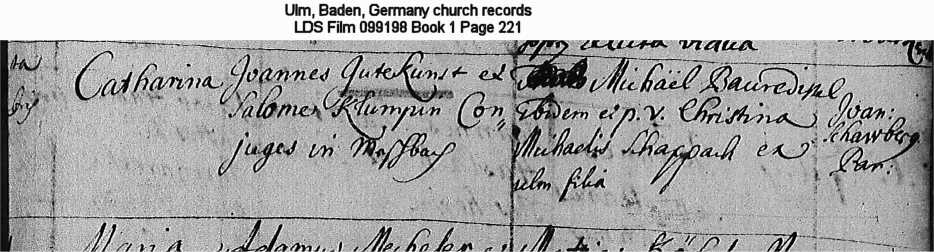 Ulm, Baden, Germany church records
LDS Film 099198 Book 1 Page 221
relicta vidua
Catharina
Joannes Gutekunst et
Salome Klumpin Con=
juges in Mossbach
Michaël Bauredisel
Ibidem et p. v. Christina
Michaelis Schappach ex
ulm filia
Joan:
Schawberg
Par:
Maria
Adamus Mecheler